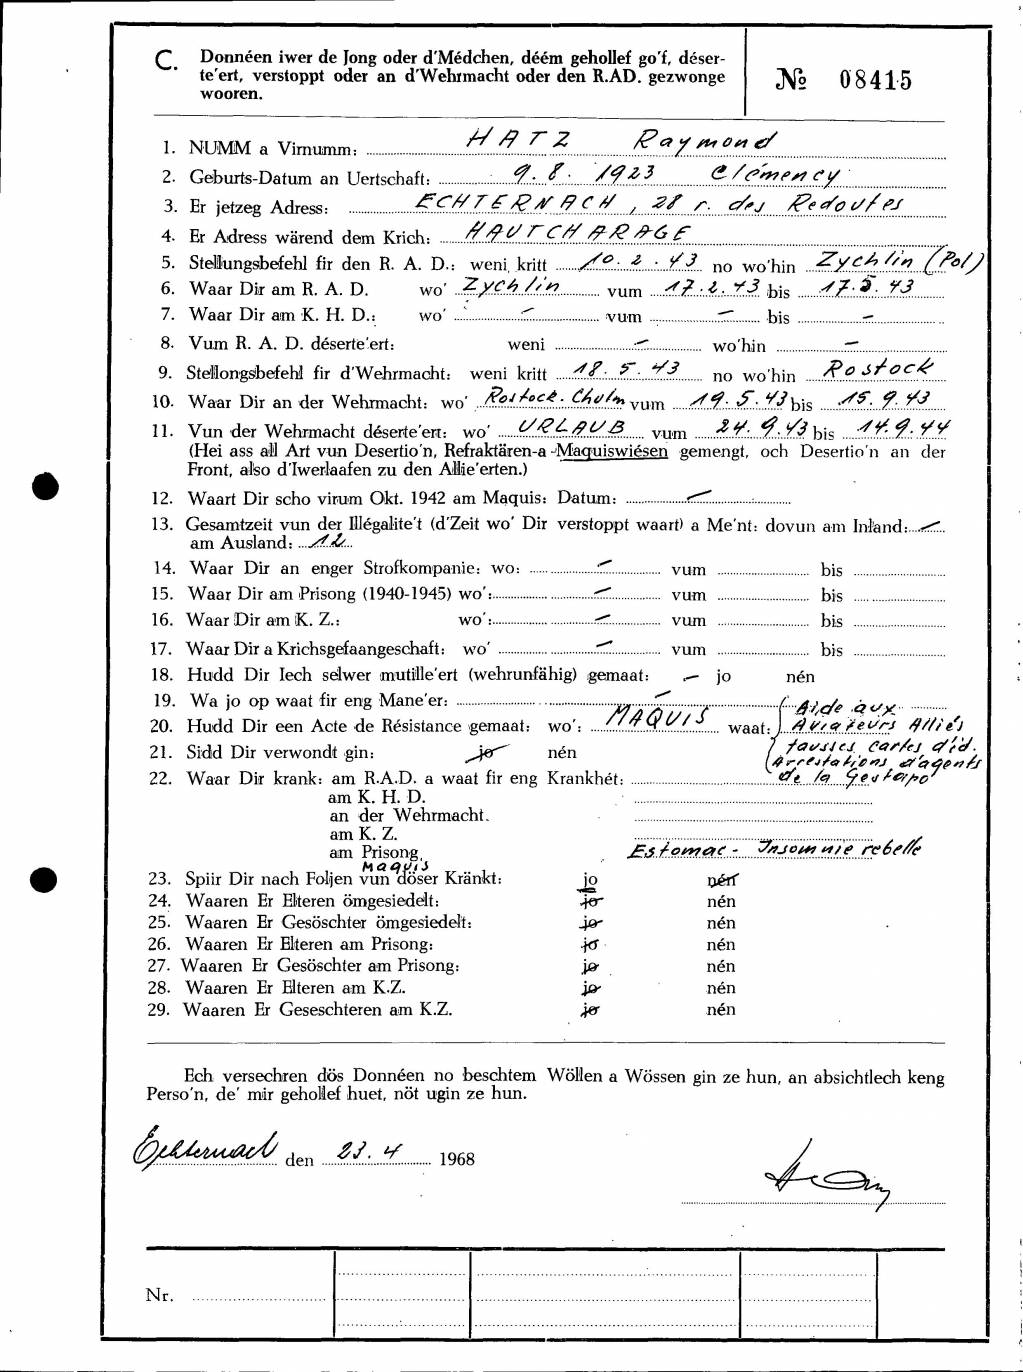 C. Donnéen iwer de Jong oder d'Médchen, déém gehollef go'f, déser-
te'ert, verstoppt oder an d'Wehrmacht oder den R.AD. gezwonge
wooren.
№ 08415
1. NUMM a Virnumm: HATZ Raymond
2. Geburts-Datum an Uertschaft: 9. 8. 1923 Clémency
3. Er jetzeg Adress: ECHTERNACH, 28 r. des Redoutes
4. Er Adress wärend dem Krich: HAUTCHARAGE
5. Stellungsbefehl fir den R. A. D.: weni kritt 10. 2. 43 no wo'hin Zychlin (Pol)
6. Waar Dir am R. A. D. wo' Zychlin vum 17. 2. 43 bis 17. 5. 43
7. Waar Dir am K. H. D.: wo' — vum — bis —
8. Vum R. A. D. déserte'ert: weni — wo'hin —
9. Stellongsbefehl fir d'Wehrmacht: weni kritt 18. 5. 43 no wo'hin Rostock
10. Waar Dir an der Wehrmacht: wo' Rostock. Chulm vum 19. 5. 43 bis 15. 9. 43
11. Vun der Wehrmacht déserte'ert: wo' URLAUB vum 24. 9. 43 bis 14. 9. 44
(Hei ass all Art vun Desertio'n, Refraktären-a -Maquiswiésen gemengt, och Desertio'n an der
Front, also d'Iwerlaafen zu den Allie'erten.)
12. Waart Dir scho virum Okt. 1942 am Maquis: Datum: —
13. Gesamtzeit vun der Illégalite't (d'Zeit wo' Dir verstoppt waart) a Me'nt: dovun am Inland: —
am Ausland: 12
14. Waar Dir an enger Strofkompanie: wo: — vum bis
15. Waar Dir am Prisong (1940-1945) wo': — vum bis
16. Waar Dir am K. Z.: wo': — vum bis
17. Waar Dir a Krichsgefaangeschaft: wo' — vum bis
18. Hudd Dir Iech selwer mutille'ert (wehrunfähig) gemaat: — jo nén
19. Wa jo op waat fir eng Mane'er: —
20. Hudd Dir een Acte de Résistance gemaat: wo': MAQUIS waat: Aide aux
Aviateurs Alliés
21. Sidd Dir verwondt gin: jo nén fausses cartes d'id.
Arrestations d'agents
22. Waar Dir krank: am R.A.D. a waat fir eng Krankhét: de la Gestapo
am K. H. D.
an der Wehrmacht.
am K. Z.
am Prisong. Estomac - Insomnie rebelle
MAQUIS
23. Spiir Dir nach Foljen vun döser Kränkt: jo nén
24. Waaren Er Elteren ömgesiedelt: jo nén
25. Waaren Er Gesöschter ömgesiedelt: jo nén
26. Waaren Er Elteren am Prisong: jo nén
27. Waaren Er Gesöschter am Prisong: jo nén
28. Waaren Er Elteren am K.Z. jo nén
29. Waaren Er Geseschteren am K.Z. jo nén
Ech versechren dös Donnéen no beschtem Wöllen a Wössen gin ze hun, an absichtlech keng
Perso'n, de' mir gehollef huet, nöt ugin ze hun.
Echternach den 23. 4 1968
Nr.